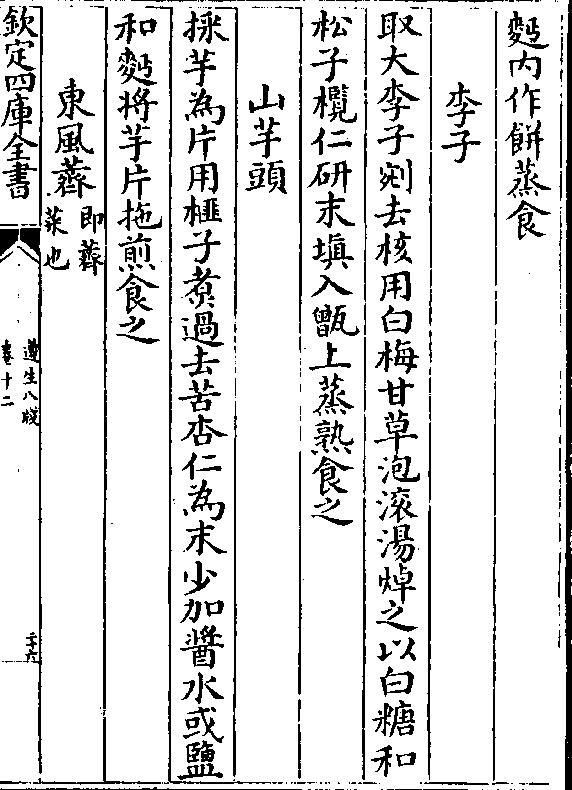 麪内作餅蒸食
李子
取大李子剜去核用白梅甘草泡滚湯焯之以白糖和
松子欖仁研末填入甑上蒸熟食之
山芋頭
採芋為片用榧子煑過去苦杏仁為末少加醬水或鹽
和麪將芋片拖煎食之
東風薺即薺菜也
欽定四庫全書
遵生八牋
卷十二
三十六